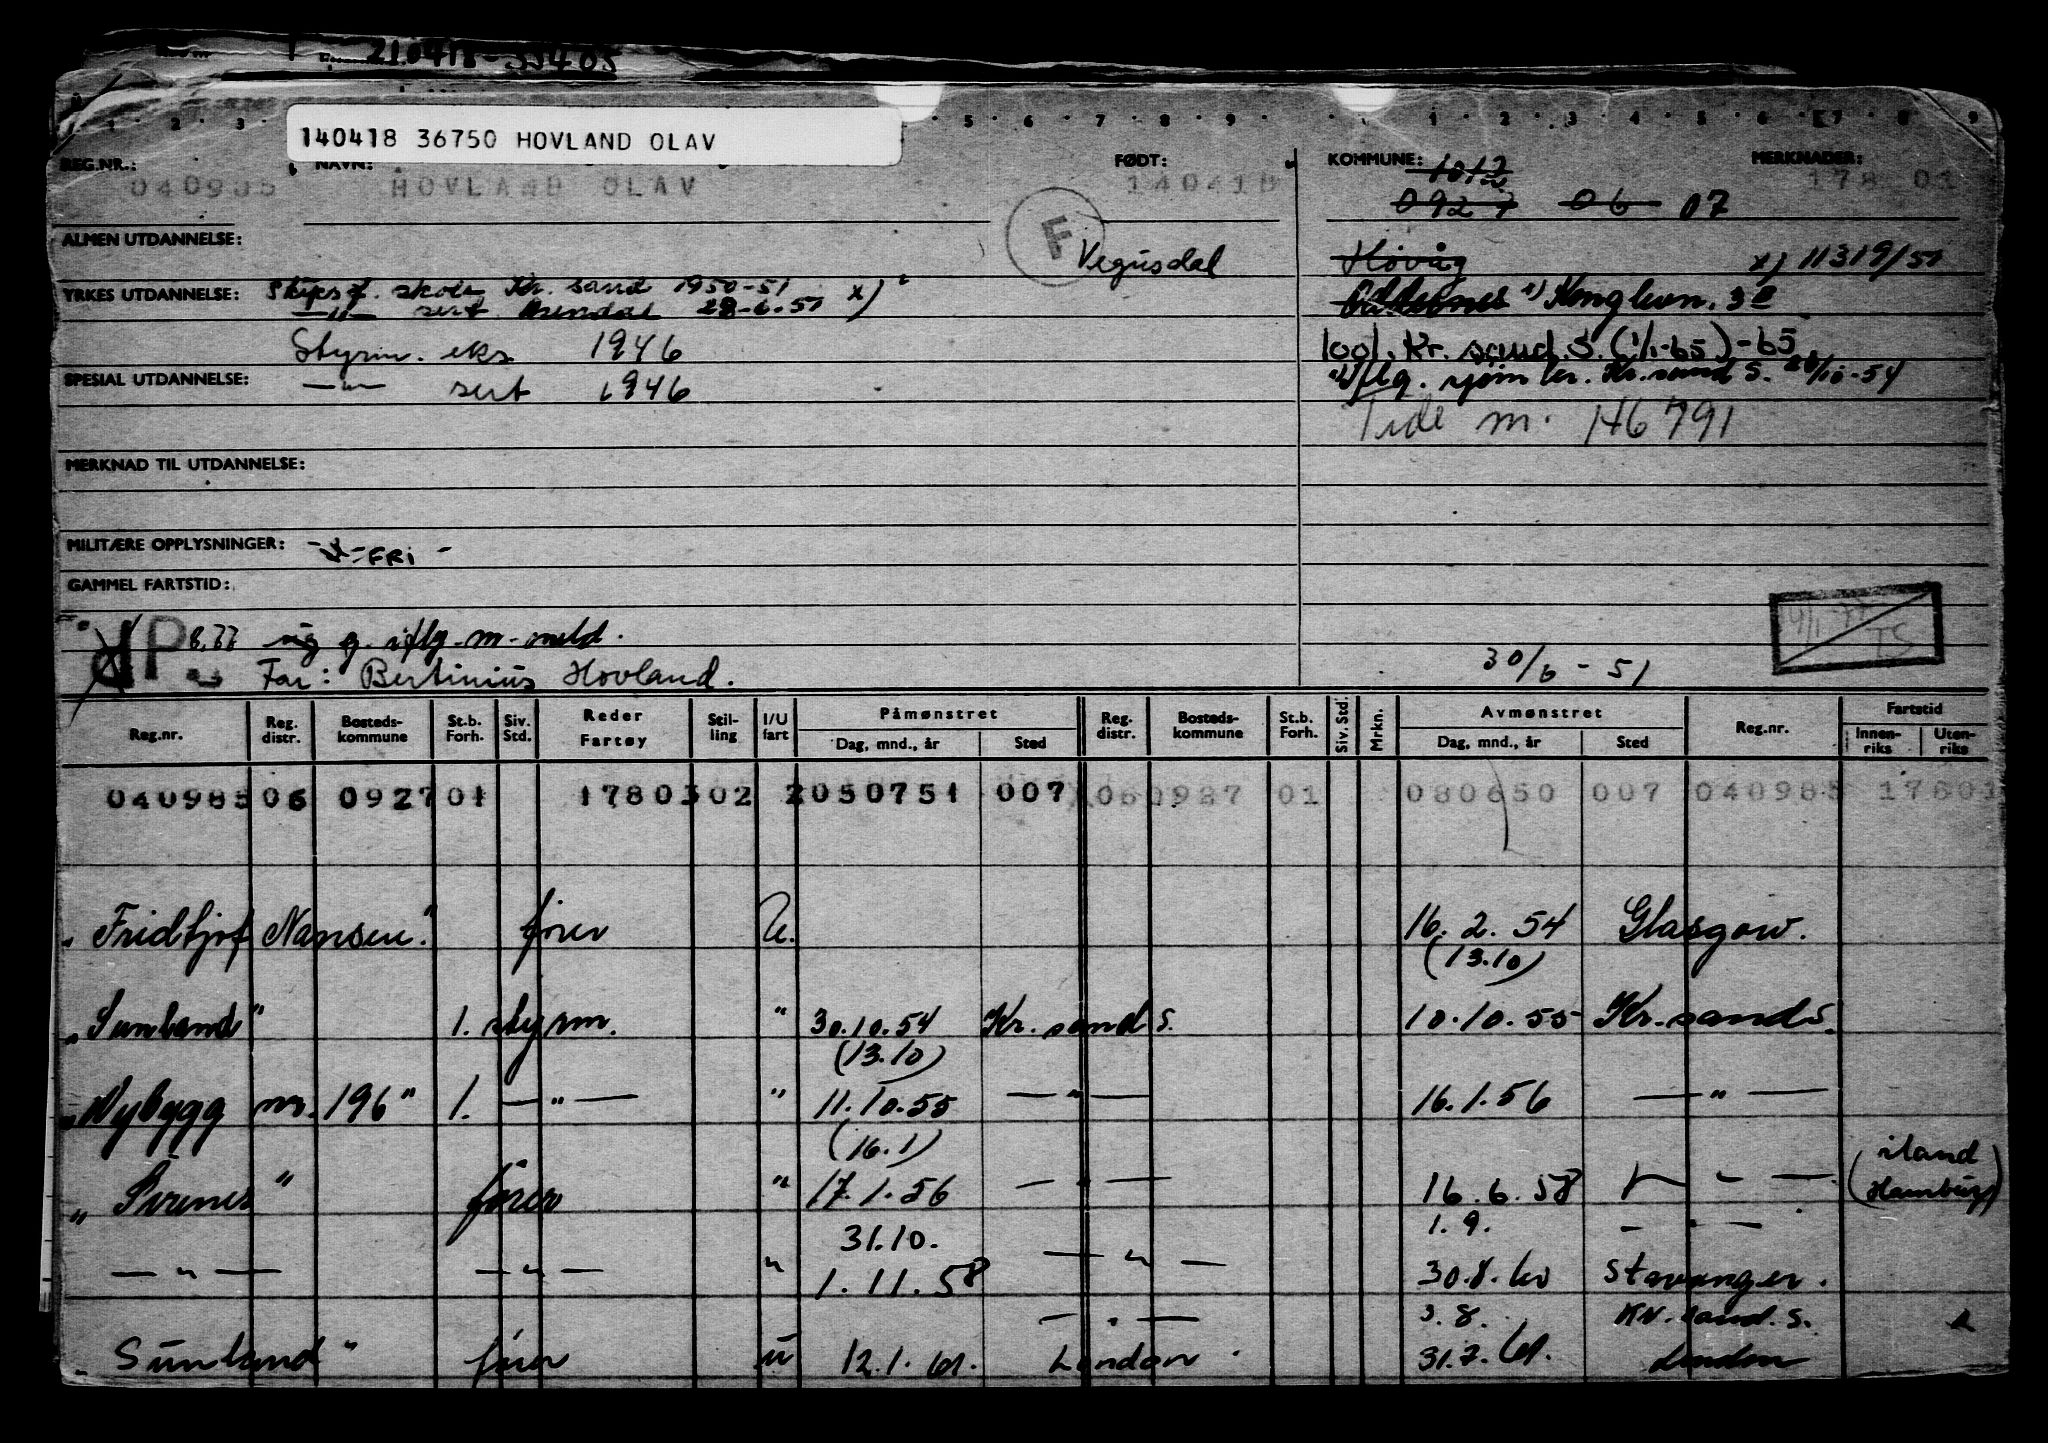 210418-
140418 36750 HOVLAND OLAV
REG.NR.: NAVN: FØDT: KOMMUNE: MERKNADER:
040985 HOVLAND OLAV 140418 1012 178 01
0927 06 07
F
ALMEN UTDANNELSE: Vegusdal Høvåg x) 11319/51
YRKES UTDANNELSE: Skipsf. skole Kr. sand 1950-51 x) Oddernes Kongleon. 3
—"— sert Arendal 28-6-51
Styrm. eks. 1946 1001. Kr. sand. S. (1/1-65)-65
SPESIAL UTDANNELSE: —"— sert 1946 iflg. sjøm kr. Kr. sand S. 28/10-54
Tide m. 146791
MERKNAD TIL UTDANNELSE:
MILITÆRE OPPLYSNINGER: FRI -
GAMMEL FARTSTID:
P 8.77 g. iflg. m-meld. 14/1-77 TS
Far: Bertinius Hovland. 30/6-51
Reg.nr. Reg. distr. Bosteds-kommune St.b. Forh. Siv. Std. Reder Fartøy Stil-ling I/U fart Påmønstret Dag, mnd., år Sted Reg. distr. Bosteds-kommune St.b. Forh. Siv. Std. Mrkn. Avmønstret Dag, mnd., år Sted Reg.nr. Fartstid Innen-riks Uten-riks
040985 06 0927 01 17803 02 2 050751 007 060927 01 080650 007 040985 17801
"Fridtjof Nansen" fører U. 16. 2. 54 Glasgow.
(13.10)
"Sunland" 1. styrm. " 30.10.54 Kr. sand S. 10.10.55 Kr. sand S.
(13.10)
"Nybygg nr. 196" 1. —"— " 11.10.55 —"— 16.1.56 —"—
(16.1)
"Sirenes" fører " 17.1.56 —"— 16.6.58 —"— (iland Hamburg)
31.10. 1.9. —"—
—"— —"— " 1.11.58 —"— 30.8.60 Stavanger.
—"— 3.8. Kr. sand. S.
"Sunland" fører u 12.1.61. London 31.7.61. London